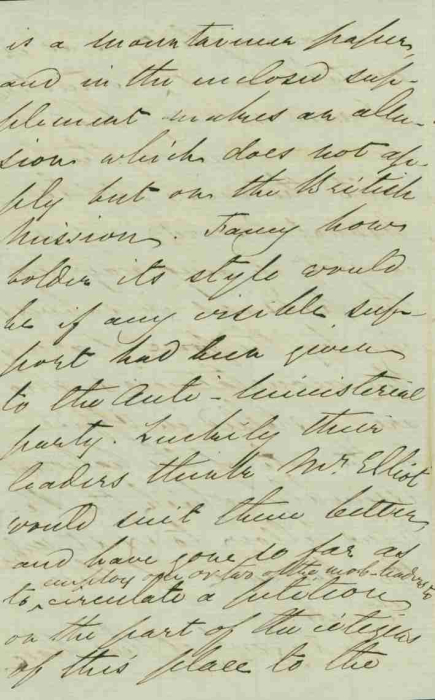 is a mountaineer paper,
and in the enclosed sup-
plement makes an allu-
sion which does not ap-
ply but on the British
Mission. Fancy how
bolder its style would
be if any visible sup-
port had been given
to the Anti-Ministerial
party. Luckily their
leaders think Mr Elliot
would suit them better,
and have gone so far as
employ one or two of the mob-leaders to
to circulate a petition
on the part of the citizens
of this place to the